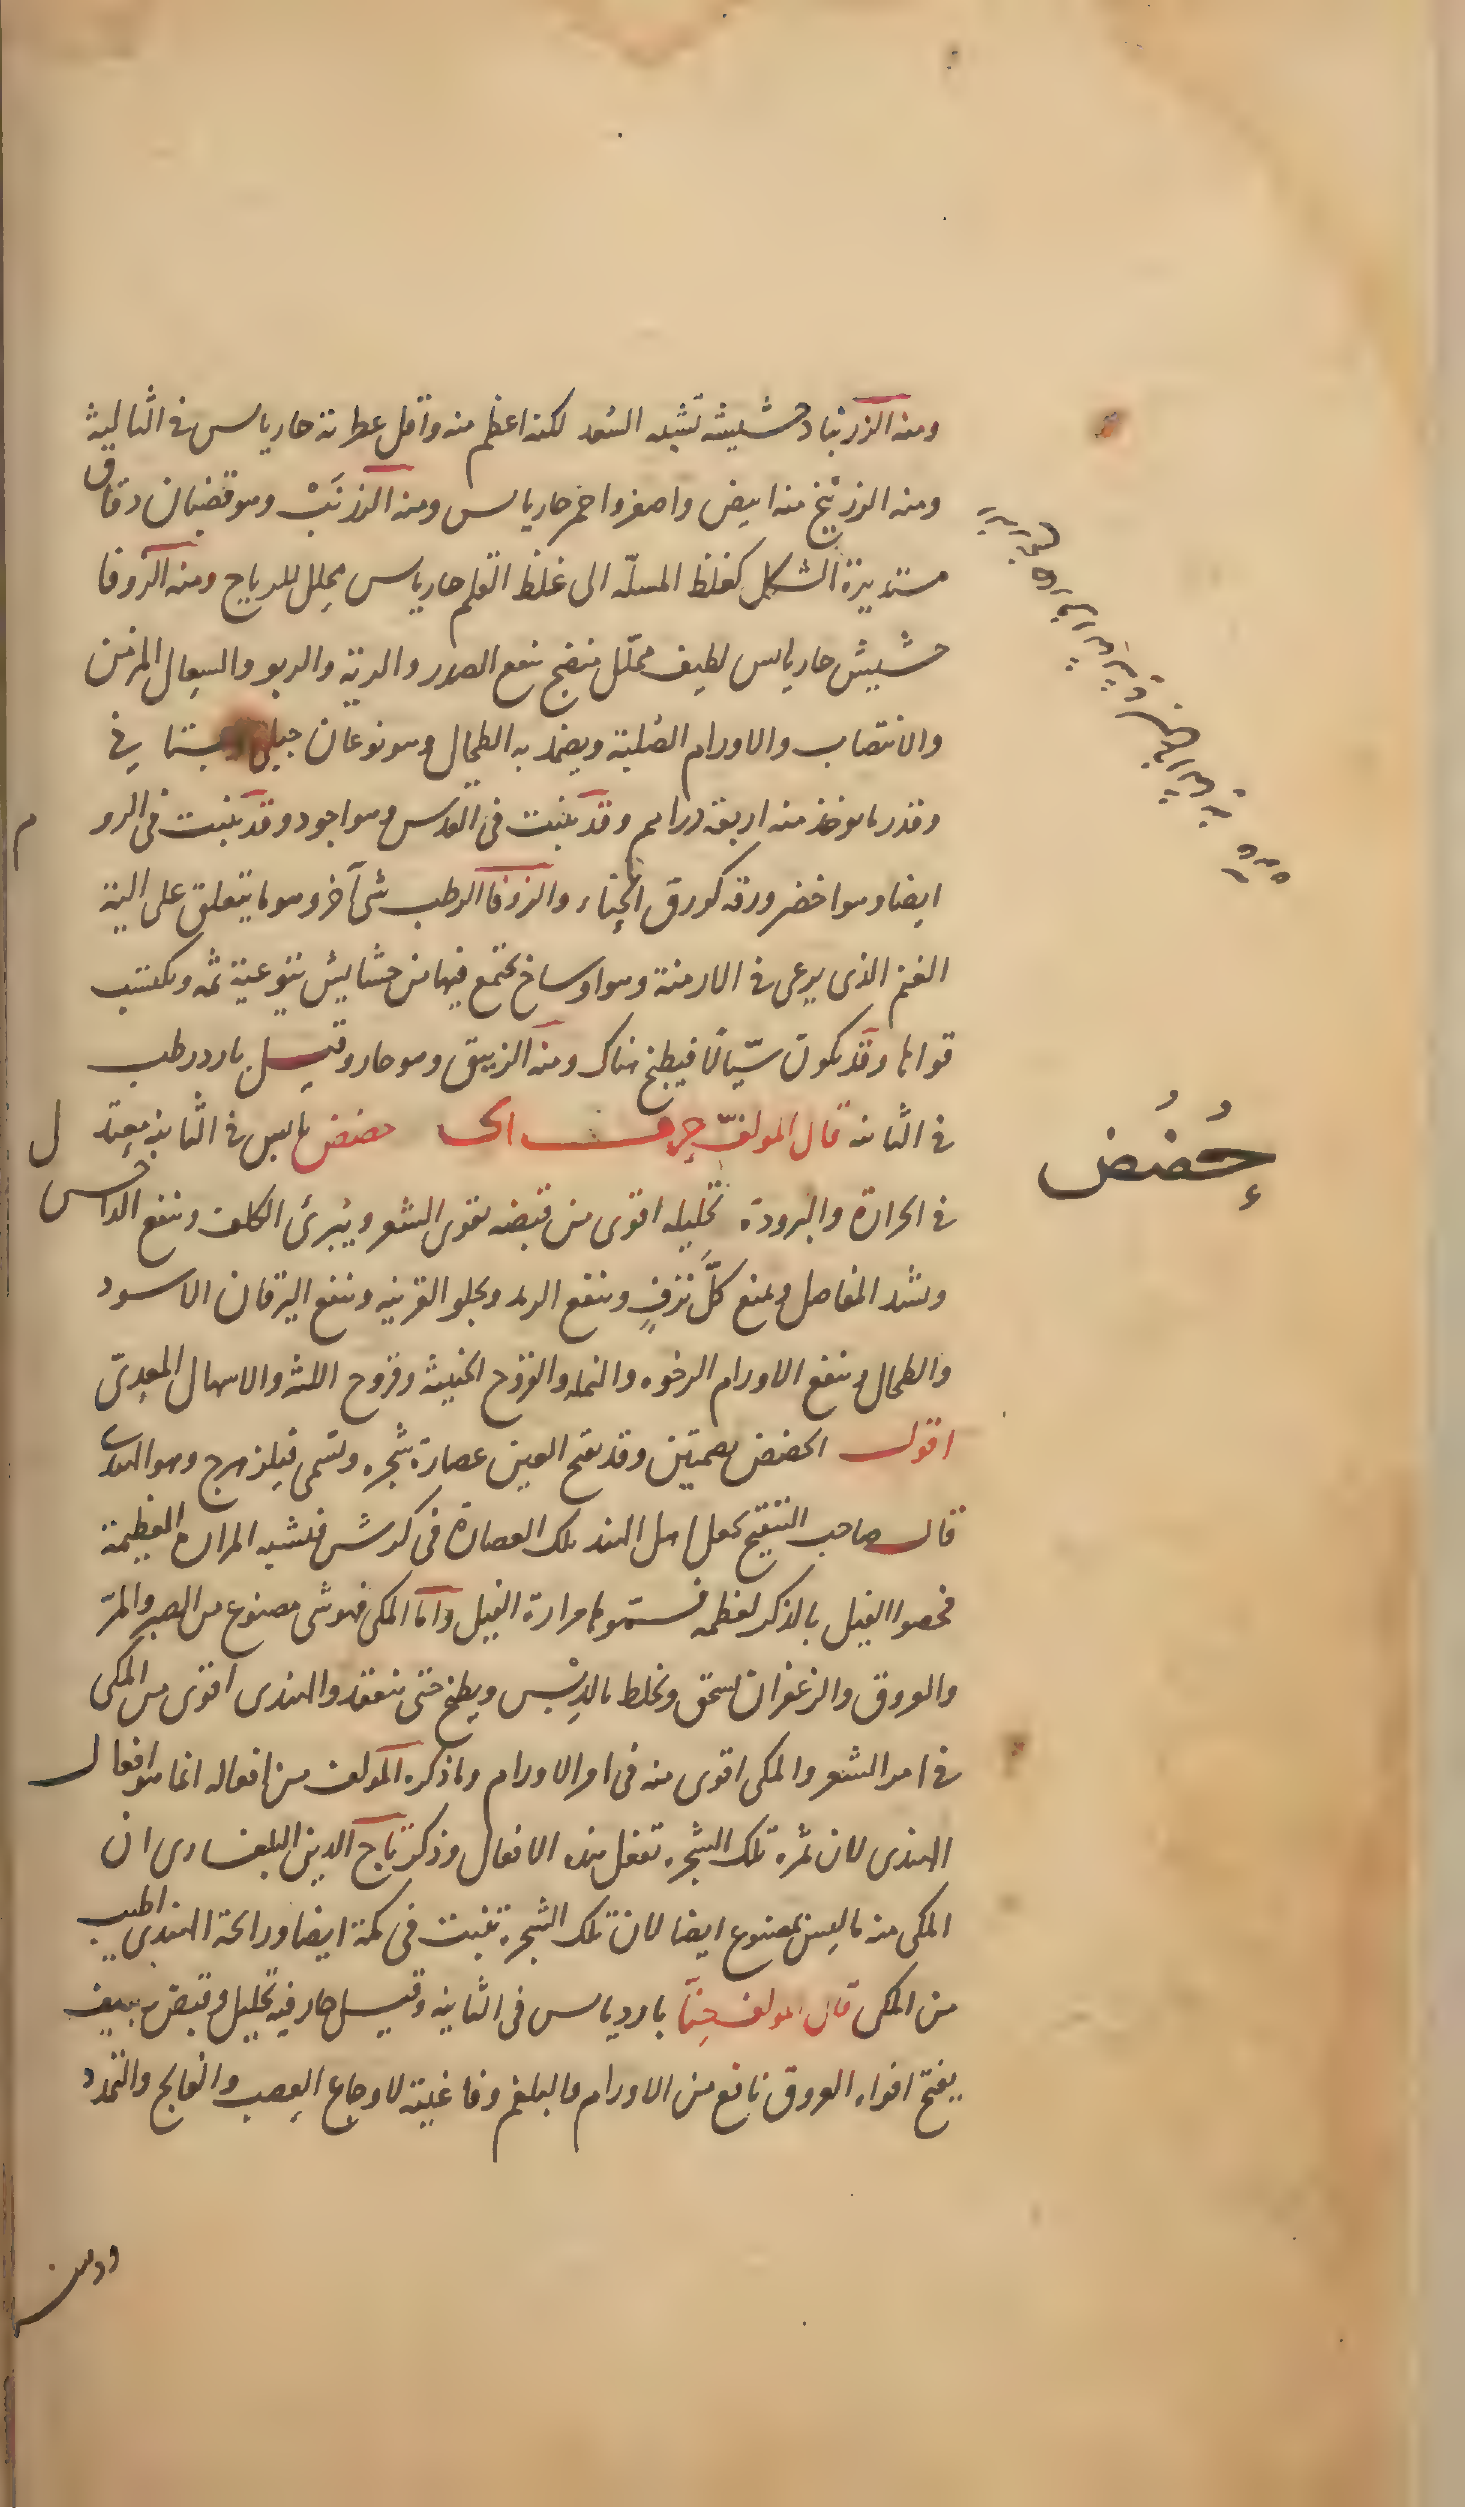 ومنه الزرنباد حشيشة تشبه السُعد لكنه اعظم منه واقل عطرية حار يابس فى الثالثة
ومنه الزرنيخ منه ابيض واصفر واحمر حار يابس ومنه الزرنَبْ وهو قضبان دقاق
مستديرة الشكل كغلظ المسلّه الى غلظ القلم حار يابس محلل للرياح ومنه الزوفا
حشيش حار يابس لطيف محلّل منضج ينفع الصدر والرية والربو والسعال المزمن
والانتصاب والاورام الصُلبة ويضمد به الطحال وهو نوعان جبلى وبستانى
وقدر ما يوخذ منه اربعة دراهم وقد ينبت فى القدس وهو اجود وقد ينبت فى الروم
ايضا وهو اخضر ورقه كورق الحِناء والزوفا الرطب شى آخر وهو ما يتعلق على الية
الغنم الذى يرعى فى الارمنة وهو اوساخ تجتمع فيها من حشايش يتوعية ثمه ويكتسب
قوامها وقد يكون سيّالًا فيطبخ هناك ومنه الزيبق وهو حار وقيل بارد رطب
فى الثانيه قال المولفّ حرف الحا حضض يابس فى الثانيه معتدل
فى الحرارة والبرودة تحليله اقوى من قبضه يقوى الشعر ويُبرئ الكلف وينفع الداحس
ويشد المفاصل ويمنع كلَّ نزفٍ وينفع الرمد ويجلو القرنيه وينفع اليرقان الاسود
والطحال وينفع الاورام الرخوه والنمله والقروح الخبيثة وقروح اللثه والاسهال المعدِىّ
اقول الحضض بضمتين وقد يفتح العين عصارة شجره وتسمى فيلزهرج وهو الهندى
قال صاحب التنقيح يجعل اهل الهند تلك العصارة فى كرش فتشبه المرارة العظيمة
فخصوا الفيل بالذكر لعظمه فسمّوها مرارة الفيل وأما المكى فهو شى مصنوع من الصبر والمرّ
والعروق والزعفران تسحق وتخلط بالدِبْس ويطبخ حتى ينعقد والهندى اقوى من المكى
فى امر الشعر والمكى اقوى منه فى امر الاورام وما ذكره المولف من افعاله انما هو افعال
الهندى لان ثمرة تلك الشجره تفعل هذه الافعال وذكر تاج الدين البلغارى ان
المكى منه ما ليس بمصنوع ايضا لان تلك الشجرة تنبت فى مكة ايضا ورائحة الهندى اطيب
من المكى قال المولف حِنّا بارد يابس فى الثانيه وقيل حار فيه تحليل وقبض
يفتح افواه العروق نافع من الاورام والبلغم وفاغيته لاوجاع العصب والفالج والتمدد
حُضُض